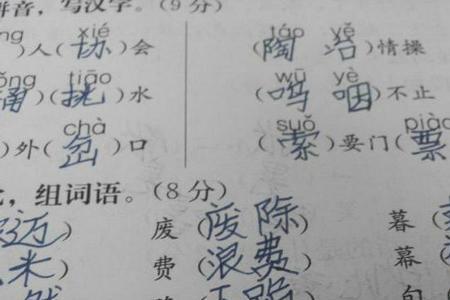 拼音，写汉字。(9分)
ng xié táo yě
)人(协)会 (陶冶)情操
ǒng tiāo wū yè
桶)(挑)水 (呜咽)不止
chà suǒ piào
)外(岔)口 (索)要门(票
，组词语。(8分)
迈) 废(废除) 暮(
米) 费(浪费) 幕(